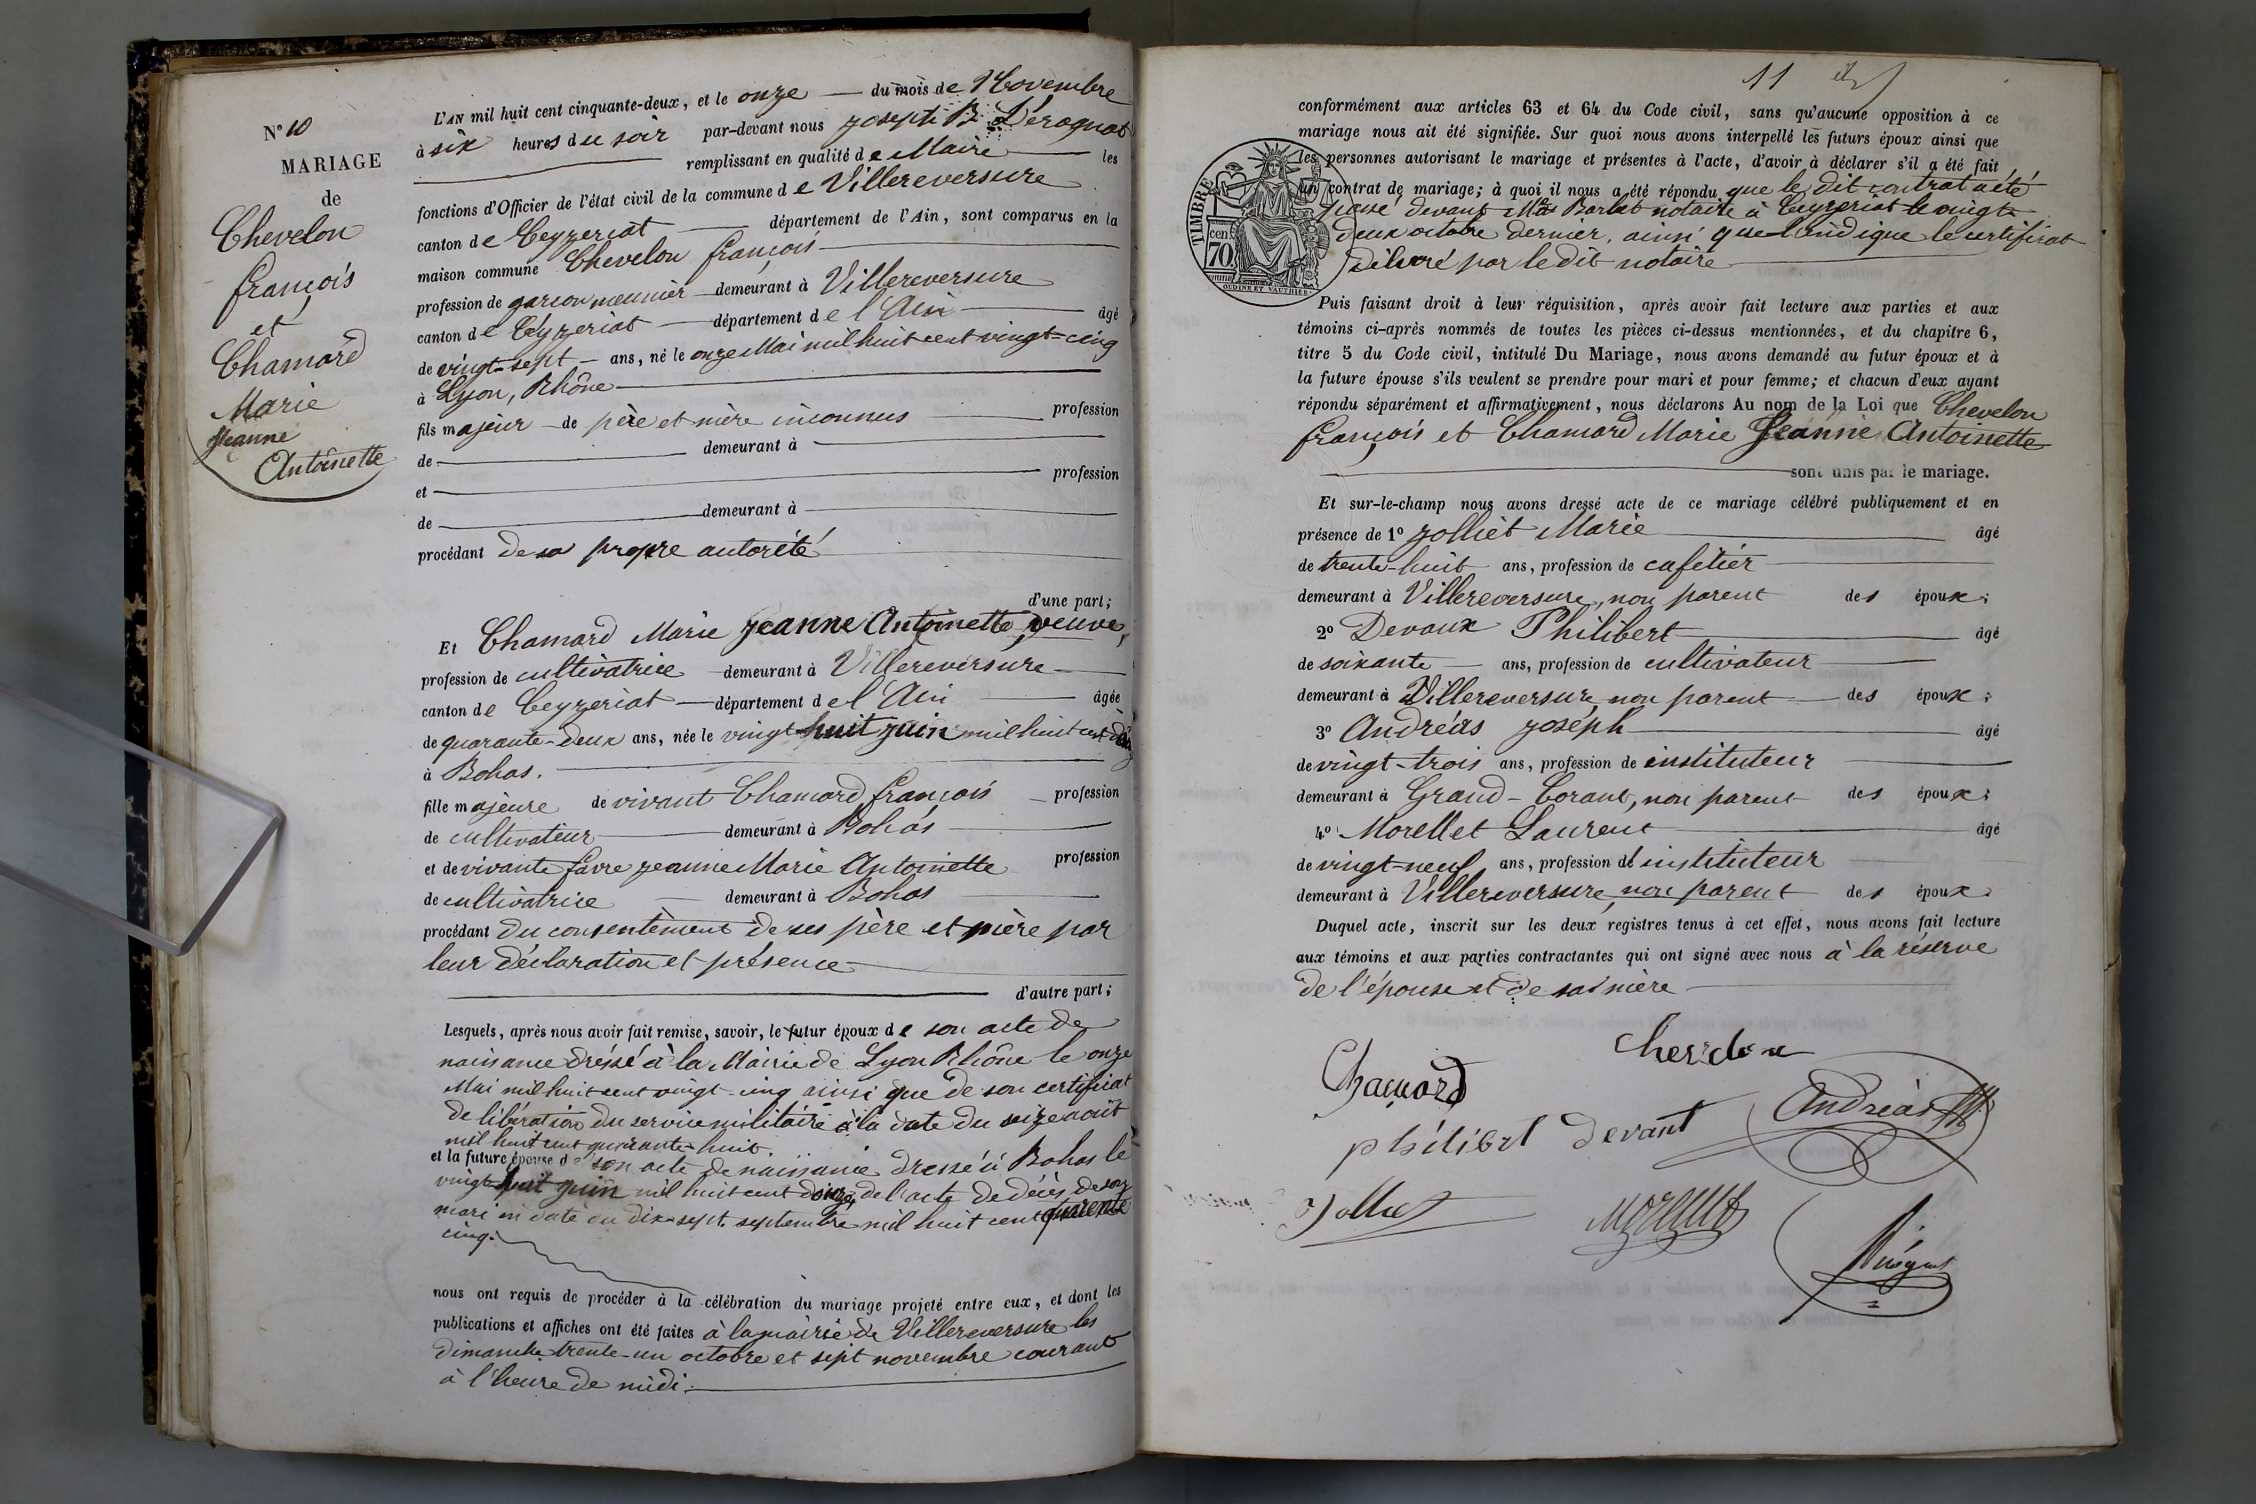 N° 10
MARIAGE
de
Chevelon
françois
et
Chamard
Marie
Jeanne
Antoinette
L'AN mil huit cent cinquante-deux, et le onze du mois de Novembre
à six heures du soir par-devant nous Joseph B. Dérognat
remplissant en qualité de Maire les
fonctions d'Officier de l'état civil de la commune de Villereversure
canton de Ceyzeriat département de l'Ain, sont comparus en la
maison commune Chevelon françois
profession de garçon meunier demeurant à Villereversure
canton de Ceyzeriat département de l'Ain âgé
de vingt-sept ans, né le onze Mai mil huit cent vingt-cinq
à Lyon, Rhône
fils majeur de père et mère inconnus profession
de demeurant à
et profession
de demeurant à
procédant de sa propre autorité
d'une part;
Et Chamard Marie Jeanne Antoinette, veuve,
profession de cultivatrice demeurant à Villereversure
canton de Ceyzeriat département de l'Ain âgée
de quarante-deux ans, née le vingt huit juin mil huit cent dix
à Bohas.
fille majeure de vivant Chamard françois profession
de cultivateur demeurant à Bohas
et de vivante favre jeanne Marie Antoinette profession
de cultivatrice demeurant à Bohas
procédant du consentement de ses père et mère par
leur déclaration et présence
d'autre part;
Lesquels, après nous avoir fait remise, savoir, le futur époux de son acte de
naissance dressé à la Mairie de Lyon Rhône le onze
Mai mil huit cent vingt-cinq ainsi que de son certificat
de libération du service militaire à la date du seize août
mil huit cent quarante-huit
et la future épouse de son acte de naissance dressé à Bohas le
vingt huit juin mil huit cent de l'acte de décès de son
mari en date du dix-sept septembre mil huit cent quarente
cinq.
nous ont requis de procéder à la célébration du mariage projeté entre eux, et dont les
publications et affiches ont été faites à la mairie de Villereversure les
dimanche trente-un octobre et sept novembre courant
à l'heure de midi.
11
conformément aux articles 63 et 64 du Code civil, sans qu'aucune opposition à ce
mariage nous ait été signifiée. Sur quoi nous avons interpellé les futurs époux ainsi que
les personnes autorisant le mariage et présentes à l'acte, d'avoir à déclarer s'il a été fait
un contrat de mariage; à quoi il nous a été répondu que le dit contrat a été
passé devant Me Barbet notaire à Ceyzeriat le vingt
deux octobre dernier, ainsi que l'indique le certificat
délivré par le dit notaire
TIMBRE
70 cent
OUDINE ET VAUTHIER
Puis faisant droit à leur réquisition, après avoir fait lecture aux parties et aux
témoins ci-après nommés de toutes les pièces ci-dessus mentionnées, et du chapitre 6,
titre 5 du Code civil, intitulé Du Mariage, nous avons demandé au futur époux et à
la future épouse s'ils veulent se prendre pour mari et pour femme; et chacun d'eux ayant
répondu séparément et affirmativement, nous déclarons Au nom de la Loi que Chevelon
françois et Chamard Marie Jeanne Antoinette
sont unis par le mariage.
Et sur-le-champ nous avons dressé acte de ce mariage célébré publiquement et en
présence de 1° Jolliet Marie âgé
de trente-huit ans, profession de cafetier
demeurant à Villereversure, non parent des époux;
2° Devaux Philibert âgé
de soixante ans, profession de cultivateur
demeurant à Villereversure non parent des époux;
3° Andréas Joseph âgé
de vingt-trois ans, profession de instituteur
demeurant à Grand-Corant, non parent des époux;
4° Morellet Laurent âgé
de vingt-neuf ans, profession d'instituteur
demeurant à Villereversure, non parent des époux
Duquel acte, inscrit sur les deux registres tenus à cet effet, nous avons fait lecture
aux témoins et aux parties contractantes qui ont signé avec nous à la réserve
de l'épouse et de sa mère
Chamard
philibert devant
Andréas
Jolliet